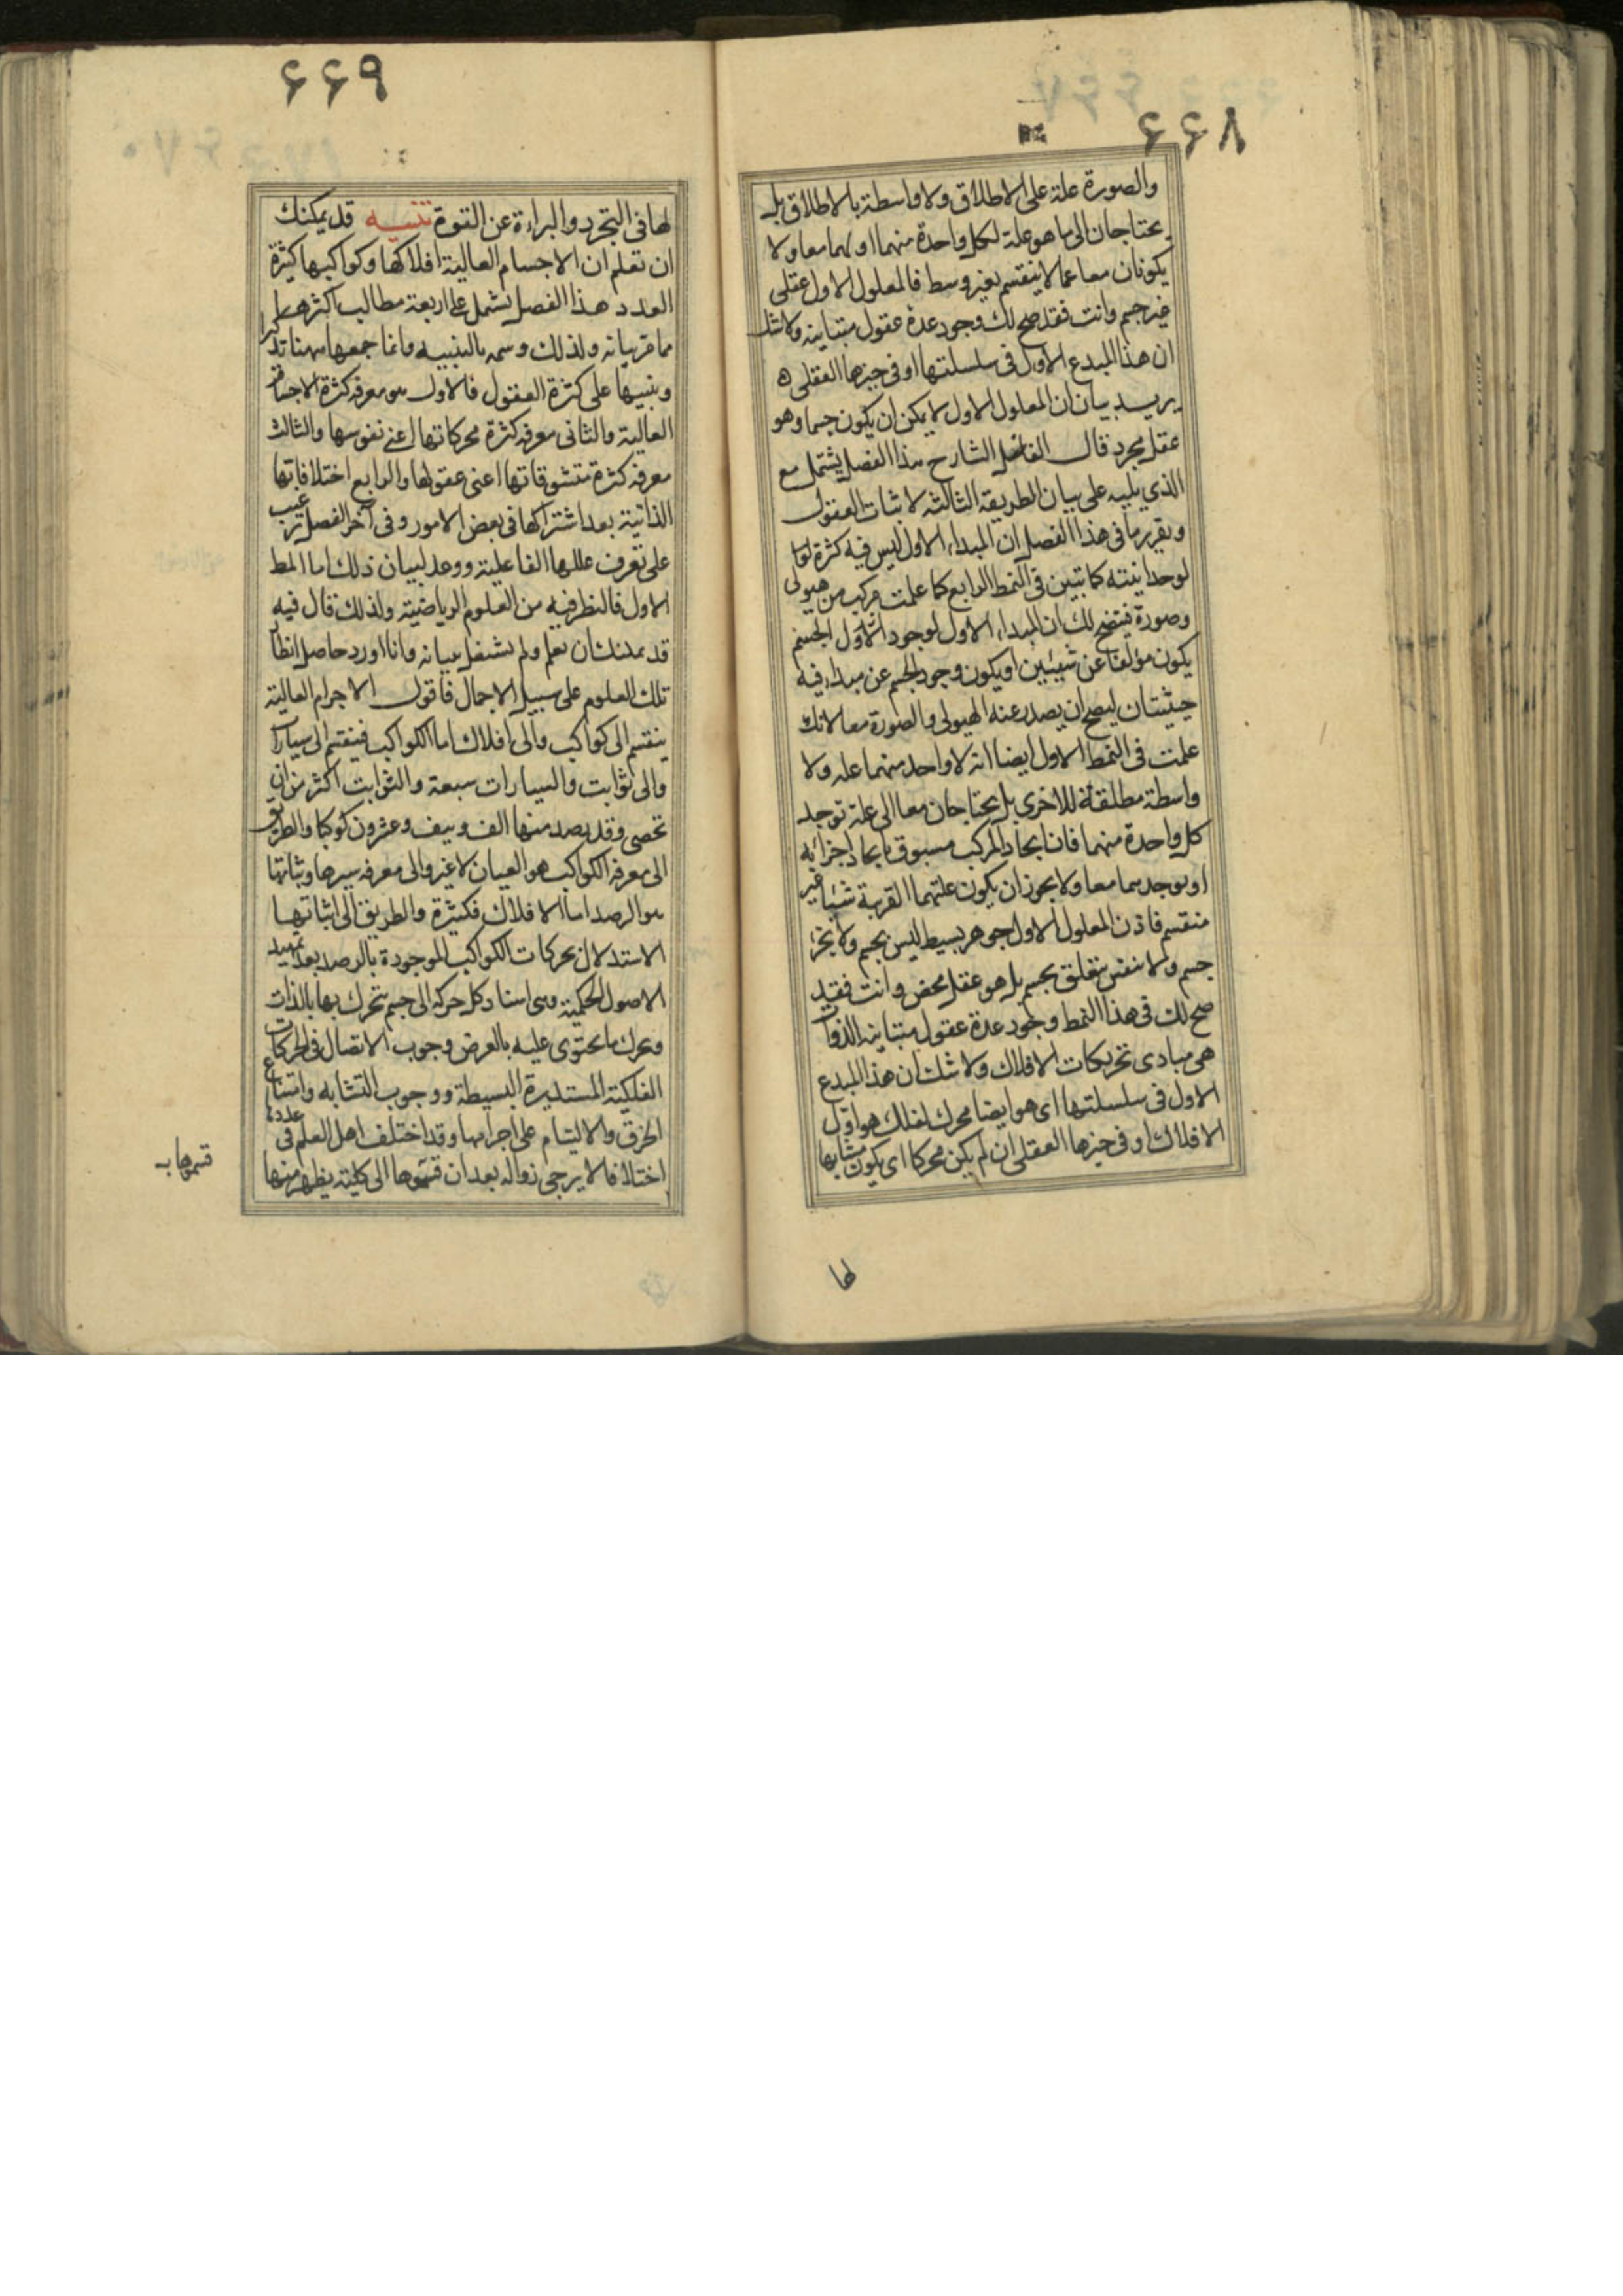 ۶۶۸
والصورة علة على الاطلاق ولا واسطة بالاطلاق بل
يحتاجان الى ما هو علة لكل واحدة منهما او لهما معا ولا
يكونان معا عما لا ينقسم بغير وسط فالمعلول الاول عقلى
غير جسم وانت فقد صح لك وجود عدة عقول متباينة ولا شك
ان هذا المبدع الاول فى سلسلتها او فى حيزها العقلى ه
يريد بيان ان المعلول الاول لا يمكن ان يكون جسما وهو
عقل مجرد قال الفاضل الشارح هذا الفصل يشتمل مع
الذي يليه على بيان الطريقة الثالثة لاثبات العقول
وتقرير ما فى هذا الفصل ان المبداء الاول ليس فيه كثرة
لوحدانيته كما تبين فى النمط الرابع كما علمت مركب من هيولى
وصورة فيتضح لك ان المبداء الاول لوجود الاول الجسم
يكون مؤلفا عن شيئين او يكون وجود الجسم عن مبداء فيه
حيثيتان ليصح ان يصدر عنه الهيولى والصورة معا لانك
علمت فى النمط الاول ايضا انه لا واحد منهما علة ولا
واسطة مطلقة للاخرى بل يحتاجان معا الى علة توجد
كل واحدة منهما فان ايجاد المركب مسبوق بايجاد اجزائه
او يوجدهما معا ولا يجوز ان يكون علتهما القريبة شيئا غير
منقسم فاذن المعلول الاول جوهر بسيط ليس بجسم ولا بجزء
جسم ولا نفس يتعلق بجسم بل هو عقل محض وانت فقد
صح لك فى هذا النمط وجود عدة عقول متباينة الذوات
هى مبادى تحريكات الافلاك ولا شك ان هذا المبدع
الاول فى سلسلتها اى هو ايضا محرك لفلك هو اول
الافلاك او فى حيزها العقلى ان لم يكن محركا اى يكون مشابها
لها
۶۶۹
لها فى التجرد والبراءة عن القوة تنبيه قد يمكنك
ان تعلم ان الاجسام العالية افلاكها وكواكبها كثيرة
العدد هذا الفصل يشتمل على اربعة مطالب اكثرها
مما مر بيانه ولذلك وسمه بالتنبيه وانما جمعها ههنا تذكيرا
وتنبيها على كثرة العقول فالاول هو معرفة كثرة الاجسام
العالية والثانى معرفة كثرة محركاتها اعنى نفوسها والثالث
معرفة كثرة متشوقاتها اعنى عقولها والرابع اختلافاتها
الذاتية بعد اشتراكها فى بعض الامور وفى آخر الفصل ترغيب
على تعرف عللها الفاعلية ووعد لبيان ذلك اما المط
الاول فالنظر فيه من العلوم الرياضية ولذلك قال فيه
قد يمكنك ان تعلم ولم يشتغل ببيانه وانا اورد حاصل انظار
تلك العلوم على سبيل الاجمال فاقول الاجرام العالية
ينقسم الى كواكب والى افلاك اما الكواكب فينقسم الى سيارات
والى ثوابت والسيارات سبعة والثوابت اكثر من ان
تحصى وقد رصد منها الف ونيف وعشرون كوكبا والطريق
الى معرفة الكواكب هو العيان لا غير والى معرفة سيرها وثباتها
هو الرصد اما الافلاك فكثيرة والطريق الى اثباتها
الاستدلال بحركات الكواكب الموجودة بالرصد بعد تمهيد
الاصول الحكمية وهى اسناد كل حركة الى جسم يتحرك بها بالذات
ويحرك ما يحتوى عليه بالعرض وجوب الاتصال فى الحركات
الفلكية المستديرة البسيطة ووجوب التشابه وامتناع
الخرق والالتيام على اجرامها وقد اختلف اهل العلم فى عددها
اختلافا لا يرجى زواله بعد ان قسموها الى كلية يظهر منها
قسموها